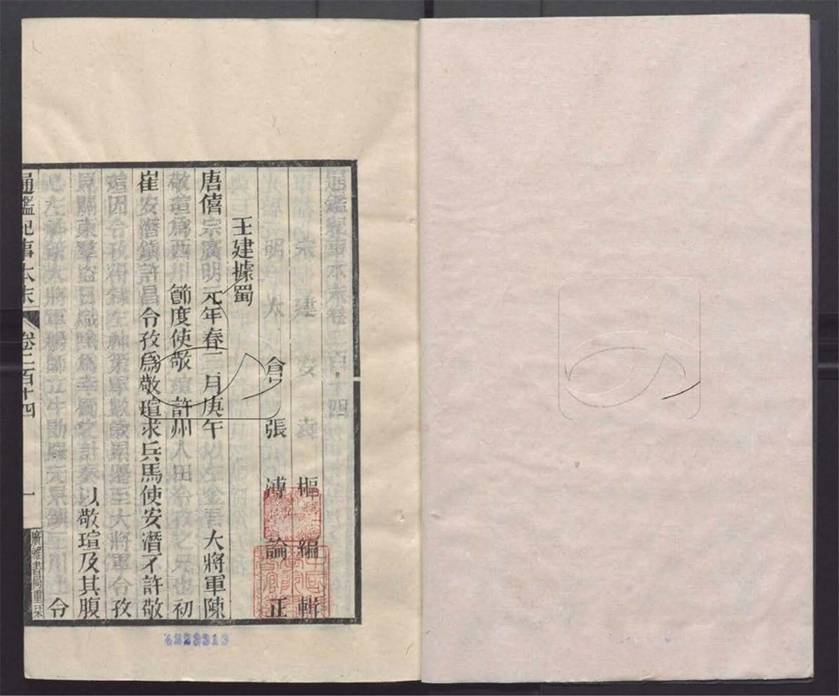 通鑑紀事本末卷二百十四
宋建安袁樞編輯
明太倉張溥論正
王建據蜀
唐僖宗廣明元年春三月庚午以左金吾大將軍陳
敬瑄爲西川節度使敬瑄許州人田令孜之兄也初
崔安潛鎮許昌令孜爲敬瑄求兵馬使安潛不許敬
瑄因令孜得錄左神策軍數歲累遷至大將軍令孜
見關東羣盜日熾陰爲幸蜀之計奏以敬瑄及其腹
心左神策大將軍楊師立牛勗羅元杲鎮三川上令
通鑑紀事本末 卷二百十四 一 廣雅書局重栞